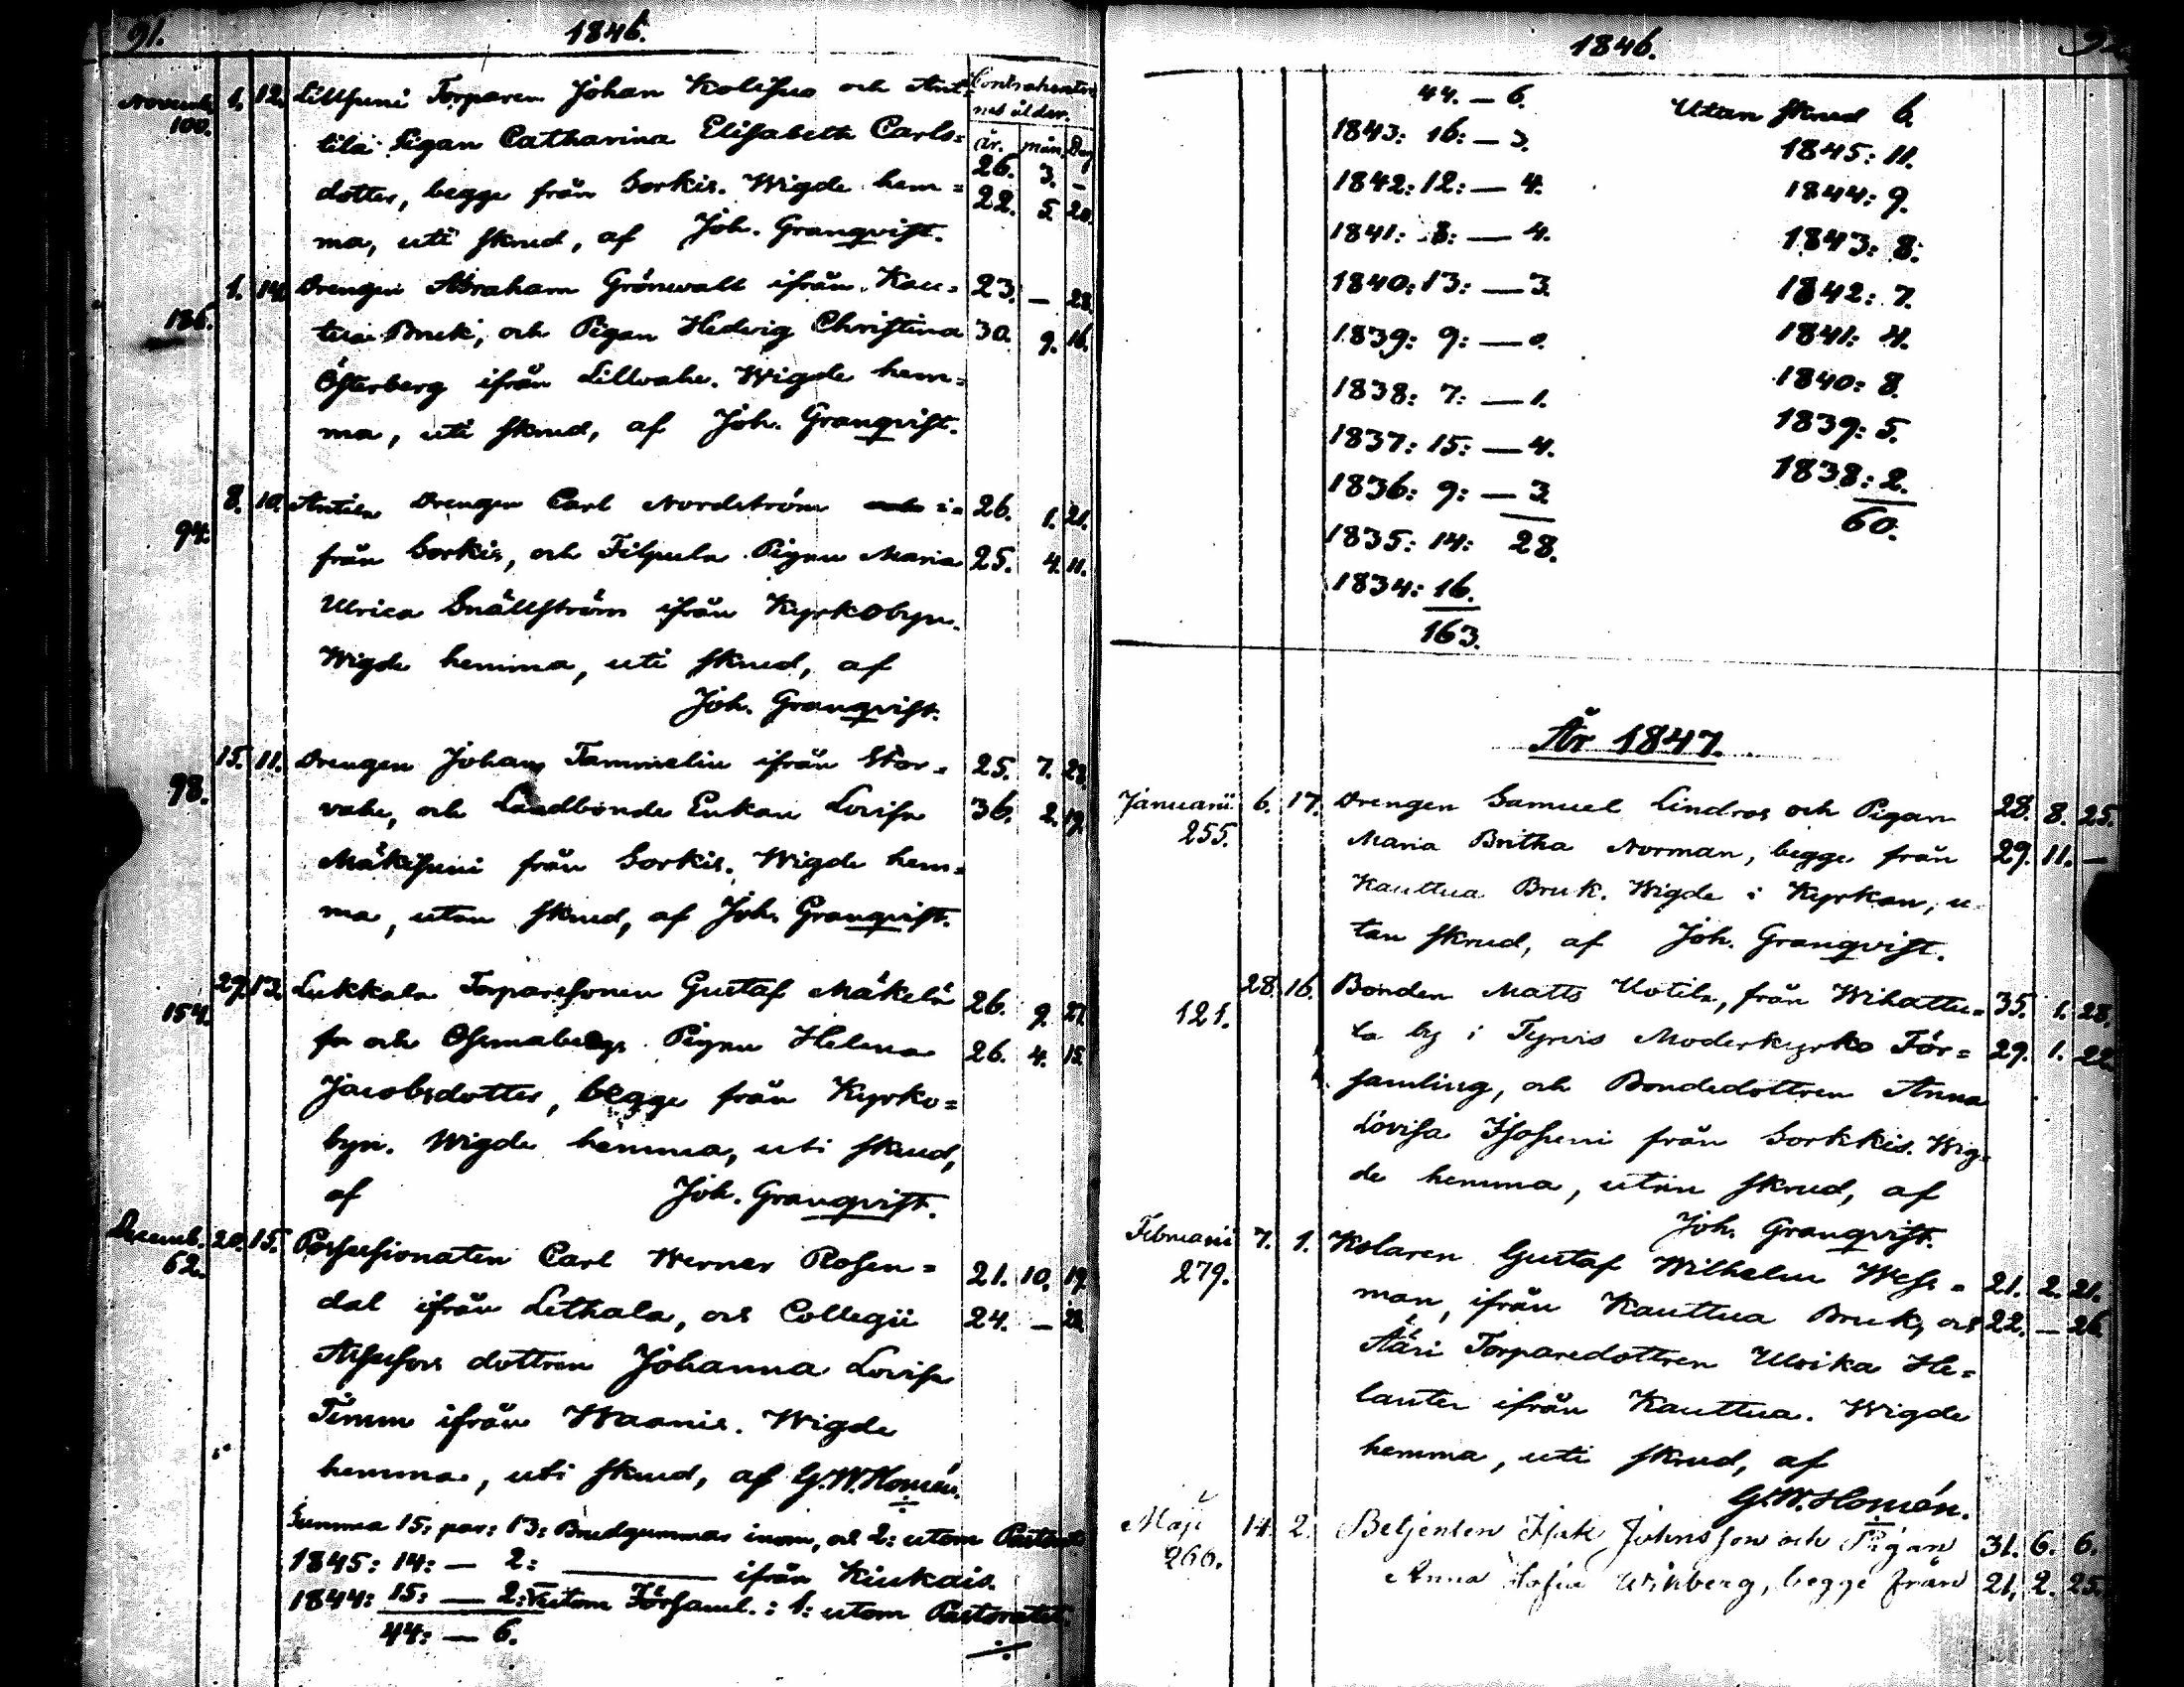 91.
1846.
Contrahenter
nas ålder.
år. mån. Dag
Novemb. 1. 12. Lillfuni Torparen Johan Kolifuo och Ant=
100. tila Pigan Catharina Elisabeth Carls= 26. 3. –
dotter, begge från Sorkis. Wigde hem= 22. 5 20.
ma, uti skrud, af Joh. Granqvist.
1. 14. Drengen Abraham Grönwall ifrån Kau= 23. – 28.
186. tua Bruk, och Pigan Hedvig Christina 30. 9. 16.
Österberg ifrån Lillvahe. Wigde hem=
ma, uti skrud, af Joh. Granqvist.
8. 10. Antila Drengen Carl Nordström i= 26. 1. 21.
94. från Sorkis, och Filpula Pigan Maria 25. 4. 11.
Ulrica Snällström ifrån Kyrkobyn.
Wigde hemma, uti skrud, af
Joh. Granqvist.
15. 11. Drengen Johan Tammelin ifrån Stor= 25. 7. 28.
98. vahe, och Landbonde Enkan Lovisa 36. 2. 19.
Mäkifuni från Sorkis. Wigde hem=
ma, utan skrud, af Joh. Granqvist.
29. 13. Lukkala Torparesonen Gustaf Mäkelä 26. 9. 27.
154. och Pigan Helena 26. 4. 15.
Jacobsdotter, begge från Kyrko=
byn. Wigde hemma, uti skrud,
af Joh. Granqvist.
Decemb. 20. 15. Possessionaten Carl Werner Rosen= 21. 10. 19.
62. dal ifrån Lethala, och Collegii 24. – 28.
Assessors dottren Johanna Lovisa
Timm ifrån Waanis. Wigde
hemma, uti skrud, af G.W. Homén.
Summa 15: par: 13: Brudgummar inom, och 2: utom Pastorat
1845: 14: — 2: ifrån Kiukais.
1844: 15: — 2: utom Församl.: 1: utom Pastoratet.
44: — 6.
1846.
44. — 6. Utan skrud 6.
1843: 16: — 3. 1845: 11.
1842: 12: — 4. 1844: 9.
1841: 8: — 4. 1843: 8.
1840: 13: — 3. 1842: 7.
1839: 9: — 0. 1841: 4.
1838: 7: — 1. 1840: 8.
1837: 15: — 4. 1839: 5.
1836: 9: — 3. 1838: 2.
1835: 14: 28. 60.
1834: 16.
163.
År 1847.
Januarii 6. 17. Drengen Samuel Lindros och Pigan 28. 8. 25.
255. Maria Britha Norman, begge från 29. 11. –
Kauttua Bruk. Wigde i Kyrkan, u=
tan skrud, af Joh. Granqvist.
28. 16. Bonden Matts Uotila, från Wihattu= 35. 1. 28.
121. la by i Tyrvis Moderkyrko För= 29. 1. 22.
samling, och Bondedottren Anna
Lovisa Isosuni från Sorkkis. Wig=
de hemma, utan skrud, af
Joh. Granqvist.
Februarii 7. 1. Kolaren Gustaf Wilhelm Wess= 21. 2. 21.
279. man, ifrån Kauttua Bruk, och 22. – 26
Ääri Torparedottren Ulrika He=
lanter ifrån Kauttua. Wigde
hemma, uti skrud, af
G.W. Homén.
Maji 14. 2. Betjenten Isak Johnsson och Pigan 31. 6. 6.
266. Anna Sofia Wikberg, begge från 21. 2. 25.